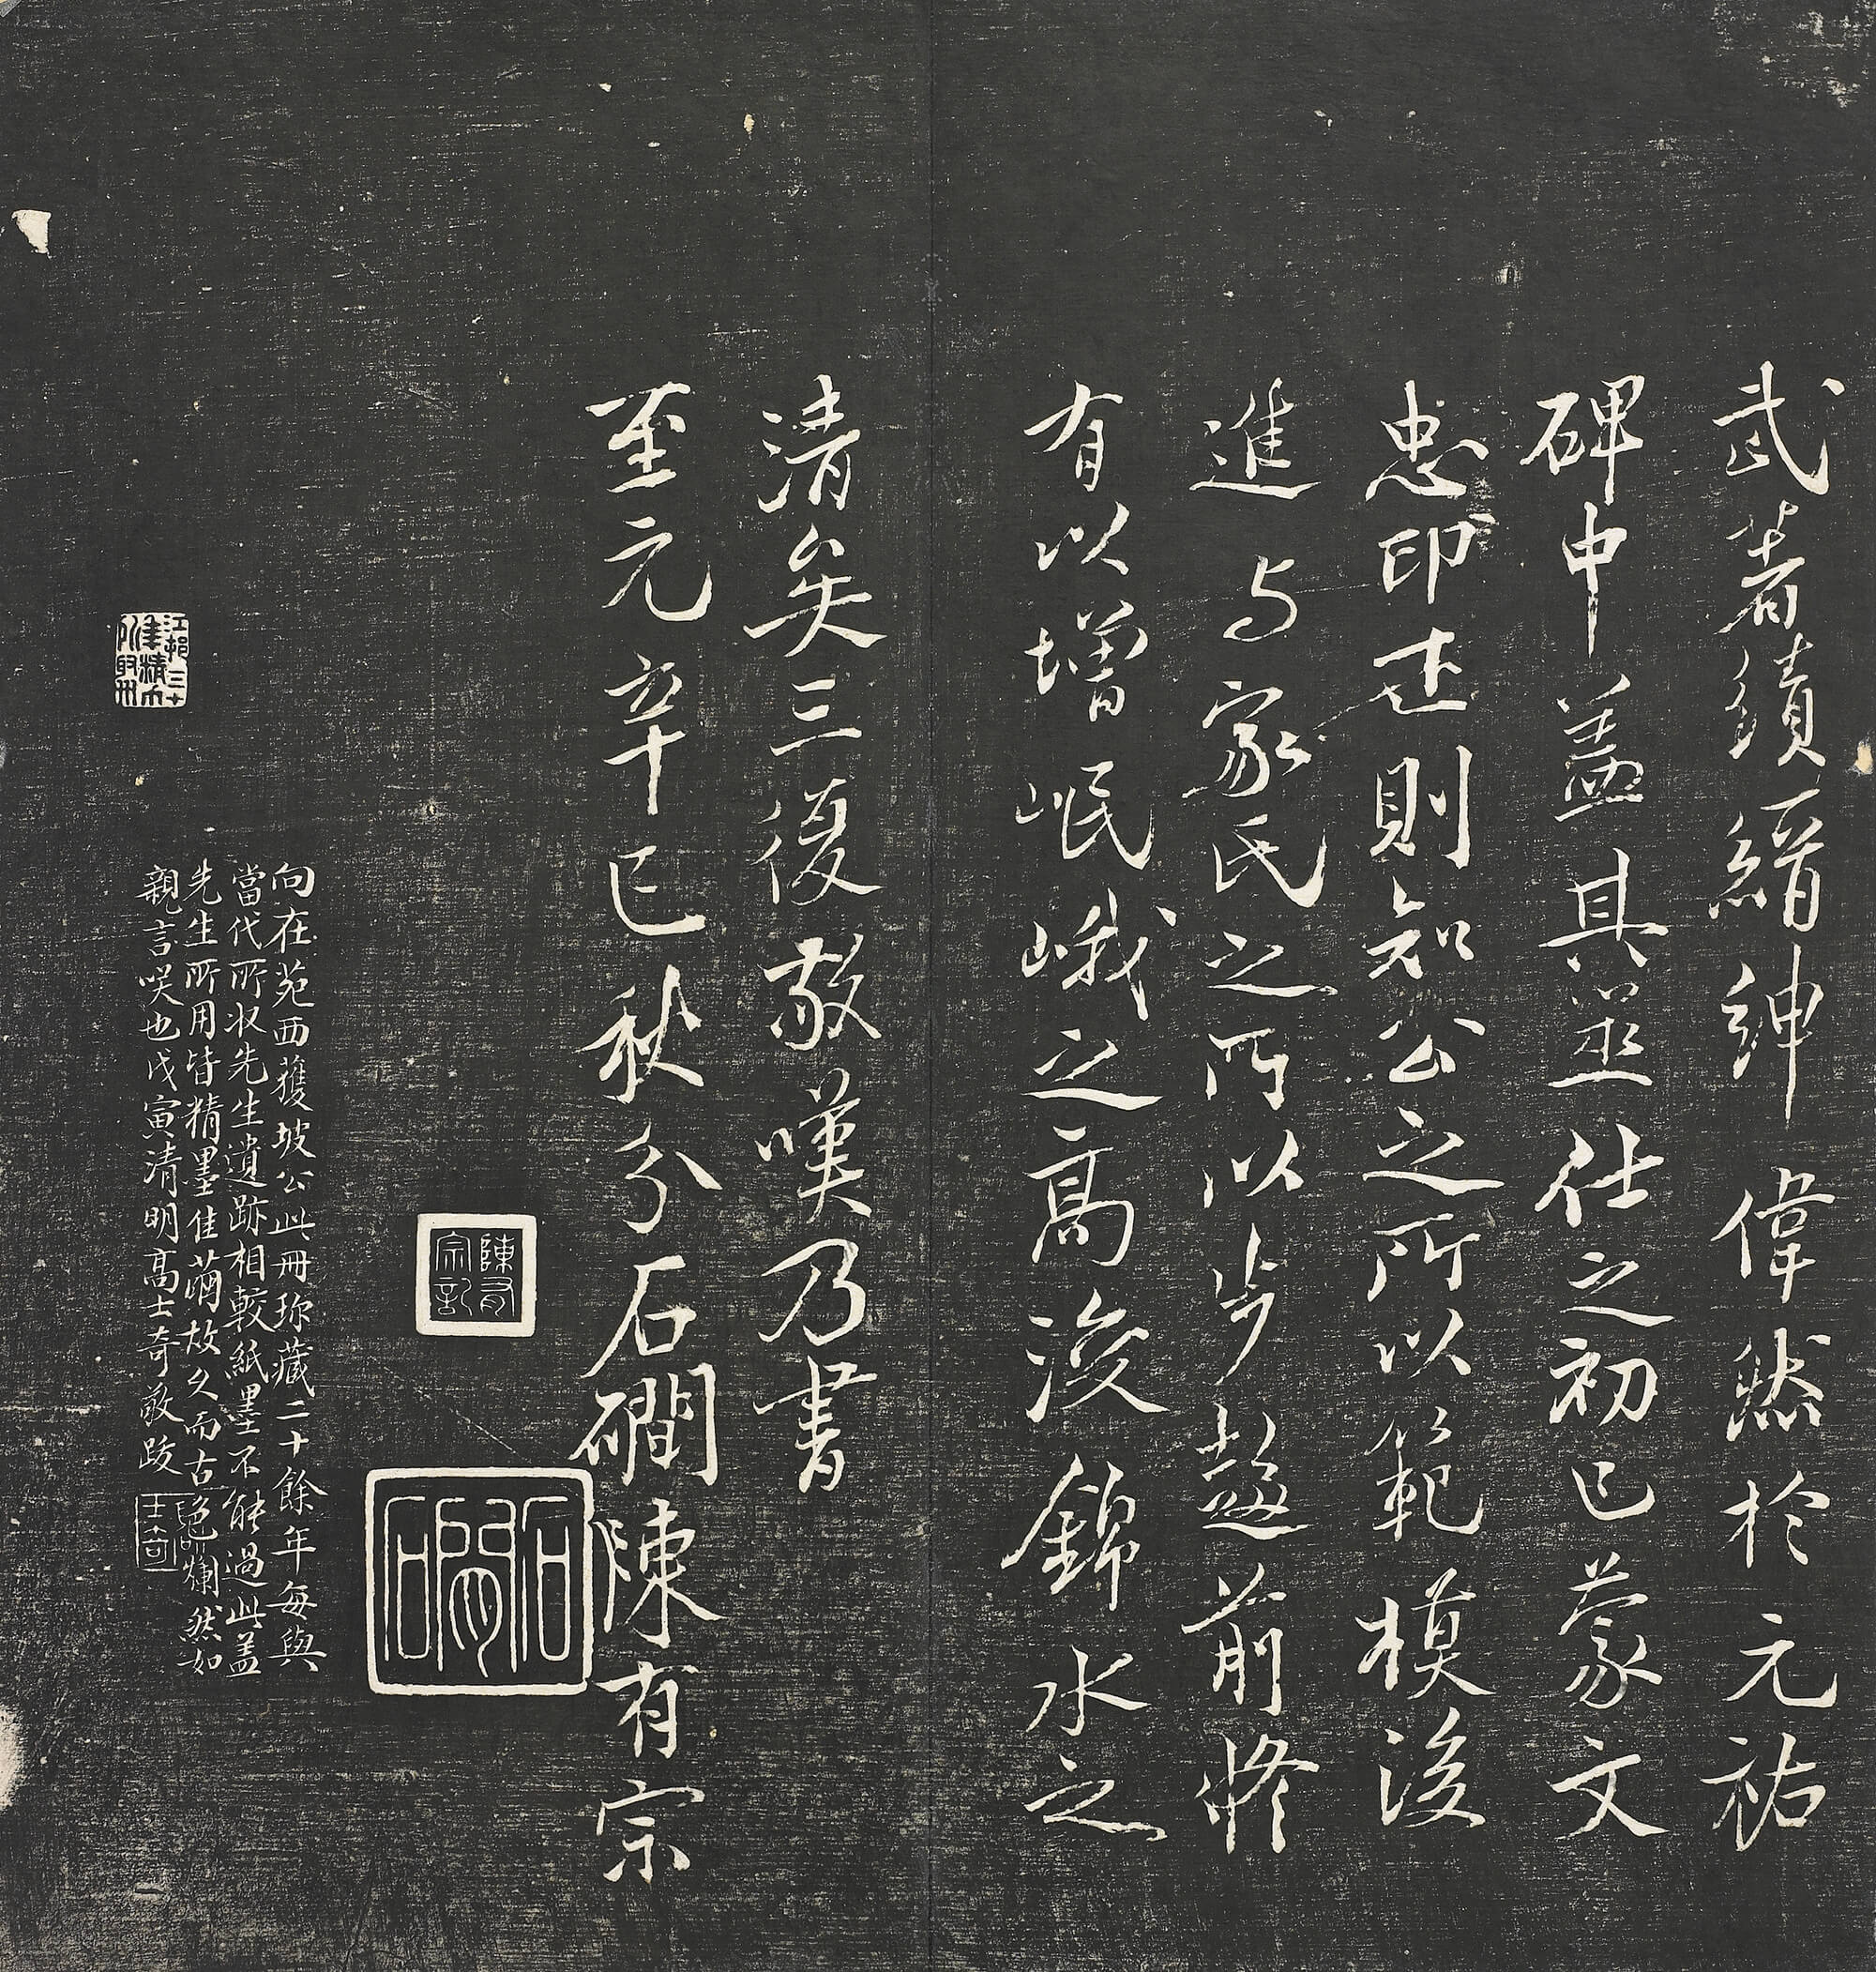 武著績縉紳偉然於元祐
碑中蓋其筮仕之初已蒙文
忠印述則知公之所以範模後
進与家氏之所以步趨前脩
有以增岷峨之高浚錦水之
清矣三復敬嘆乃書
至元辛巳秋分石磵陳有宗
陳有宗記
石磵
向在苑西獲坡公此冊珍藏二十餘年每與
當代所收先生遺跡相較紙墨不能過此蓋
先生所用皆精墨佳繭故久而古色爛然如
親言咲也戊寅清明高士奇敬跋
士奇